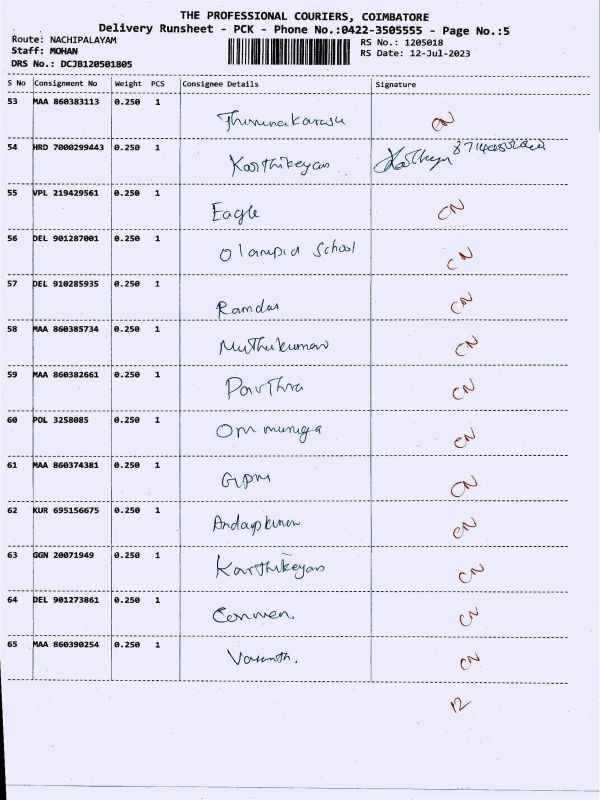 THE PROFESSIONAL COURIERS, COIMBATORE
Delivery Runsheet - PCK - Phone No.:0422-3505555 - Page No.:5
Route: NACHIPALAYAM
RS No.: 1205018
Staff: MOHAN
RS Date: 12-Jul-2023
DRS No.: DCJB120501805
S No Consignment No Weight PCS Consignee Details Signature
53 MAA 860383113 0.250 1 Thirunakarasu CN
54 HRD 7000299443 0.250 1 Karthikeyan
55 VPL 219429561 0.250 1 Eagle CN
56 DEL 901287001 0.250 1 Olampia School CN
57 DEL 910285935 0.250 1 Ramdas CN
58 MAA 860385734 0.250 1 Muthukumar CN
59 MAA 860382661 0.250 1 Pavthra CN
60 POL 3258085 0.250 1 Om muruga CN
61 MAA 860374381 0.250 1 CN
62 KUR 695156675 0.250 1 CN
63 GGN 20071949 0.250 1 Karthikeyan CN
64 DEL 901273861 0.250 1 CN
65 MAA 860390254 0.250 1 Vasanth. CN
12